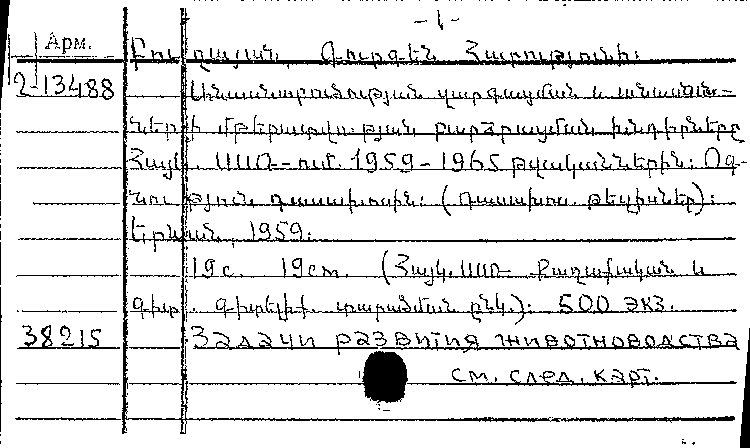 -1-
Арм. Բուղայան, Գուրգեն Հարությունի:
2-13488 Անասնաբուծության զարգացման և անասուն-
ների մթերատվության բարձրացման խնդիրները
Հայկ. ՍՍՌ-ում 1959-1965 թվականներին: Օգ-
նություն դասախոսին: (Դասախոս. թեզիսներ):
Երևան, 1959.
19с. 19cm. (Հայկ. ՍՍՌ Քաղաքական և
գիտ. գիտելիք. տարածման ընկ.): 500 экз.
38215 Задачи развития животноводства
см. след. карт.